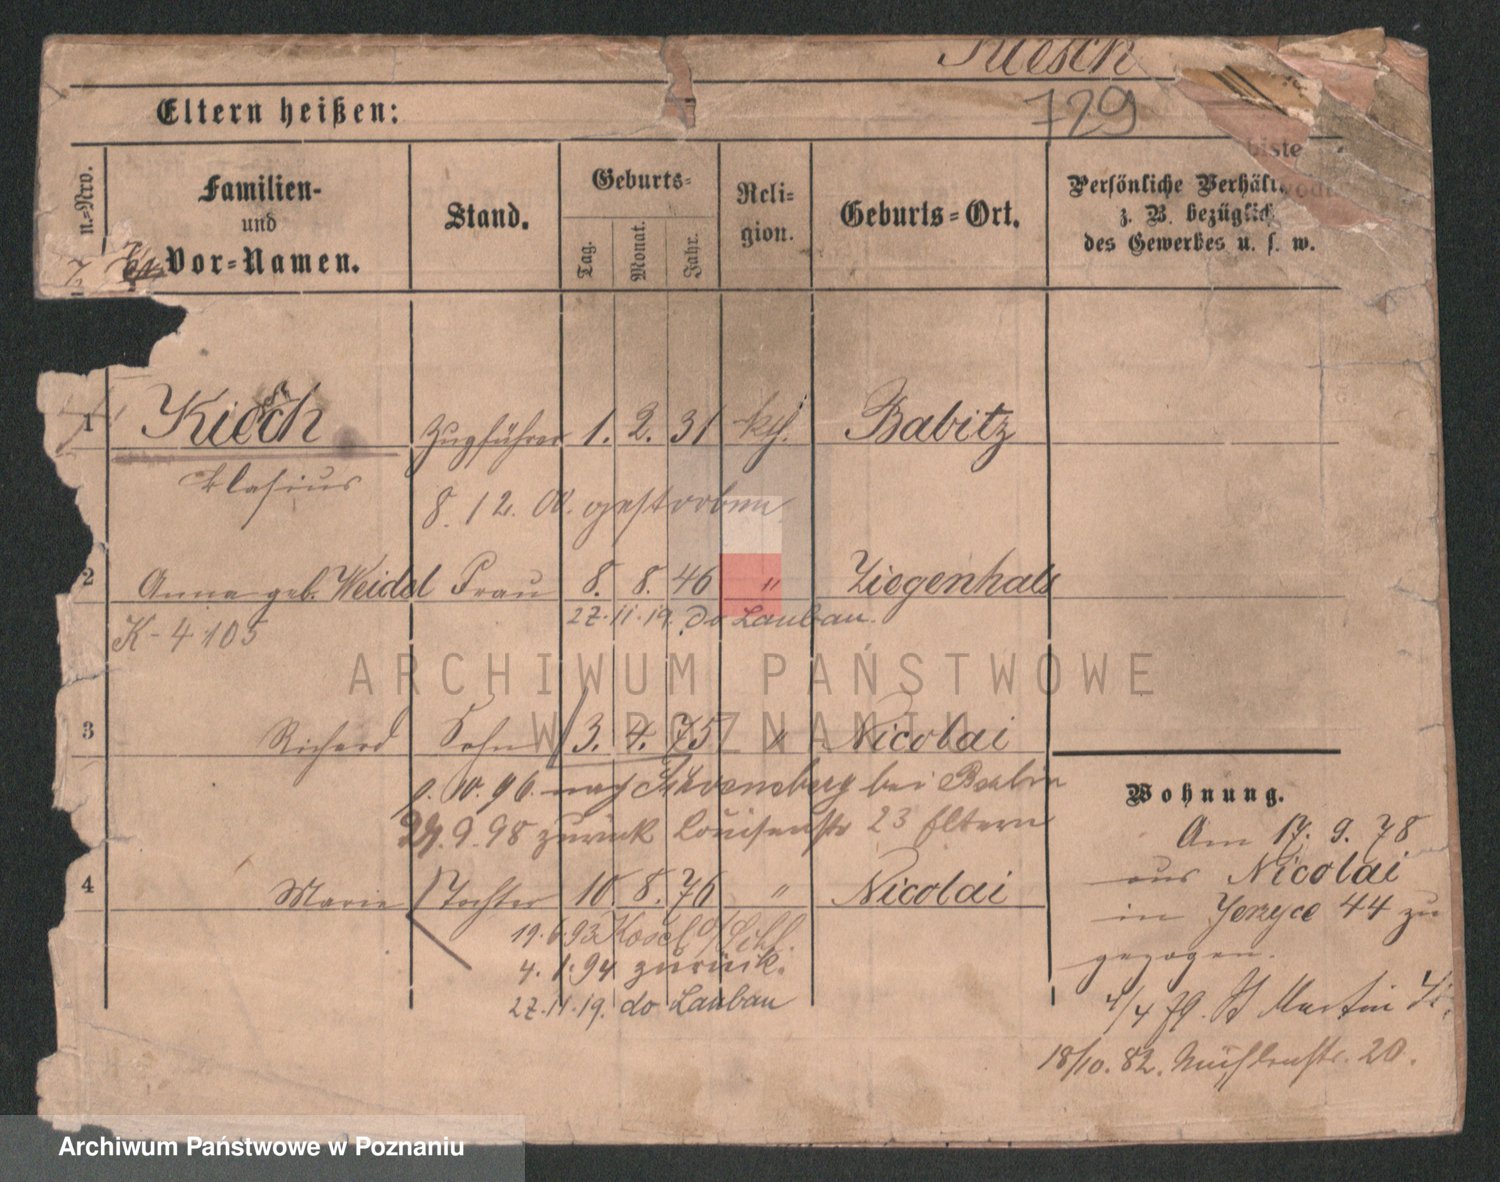 Kiesch
729
Eltern heißen:
n.=Nro.
Familien-
und
Vor=Namen.
Stand.
Geburts=
Tag.
Monat.
Jahr.
Reli=
gion.
Geburts=Ort.
Persönliche Verhält
z. B. bezüglich
des Gewerbes u. s. w.
biste
1 Kiesch Zugführer 1. 2. 31 kth. Babitz
Klasius
8. 12. 00. gestorben
2 Anna geb. Weidel Frau 8. 8. 46 " Ziegenhals
27.11.19. do Lauban.
K-4105
3 Richard Sohn 3. 4. 75 " Nicolai
10. 96. nach bei Berlin
29. 9. 98 zurück Louisenstr 23 Eltern
4 Marie Tochter 10. 8. 76 " Nicolai
19. 6. 93 Kosel
4. 1. 94 zurück.
27.11.19. do Lauban
Wohnung.
Am 17. 9. 78
aus Nicolai
in Jerzyce 44 zu
gezogen.
4/4 79. St Martin
18/10. 82. Mühlenstr. 20.
ARCHIWUM PAŃSTWOWE
W POZNANIU
Archiwum Państwowe w Poznaniu